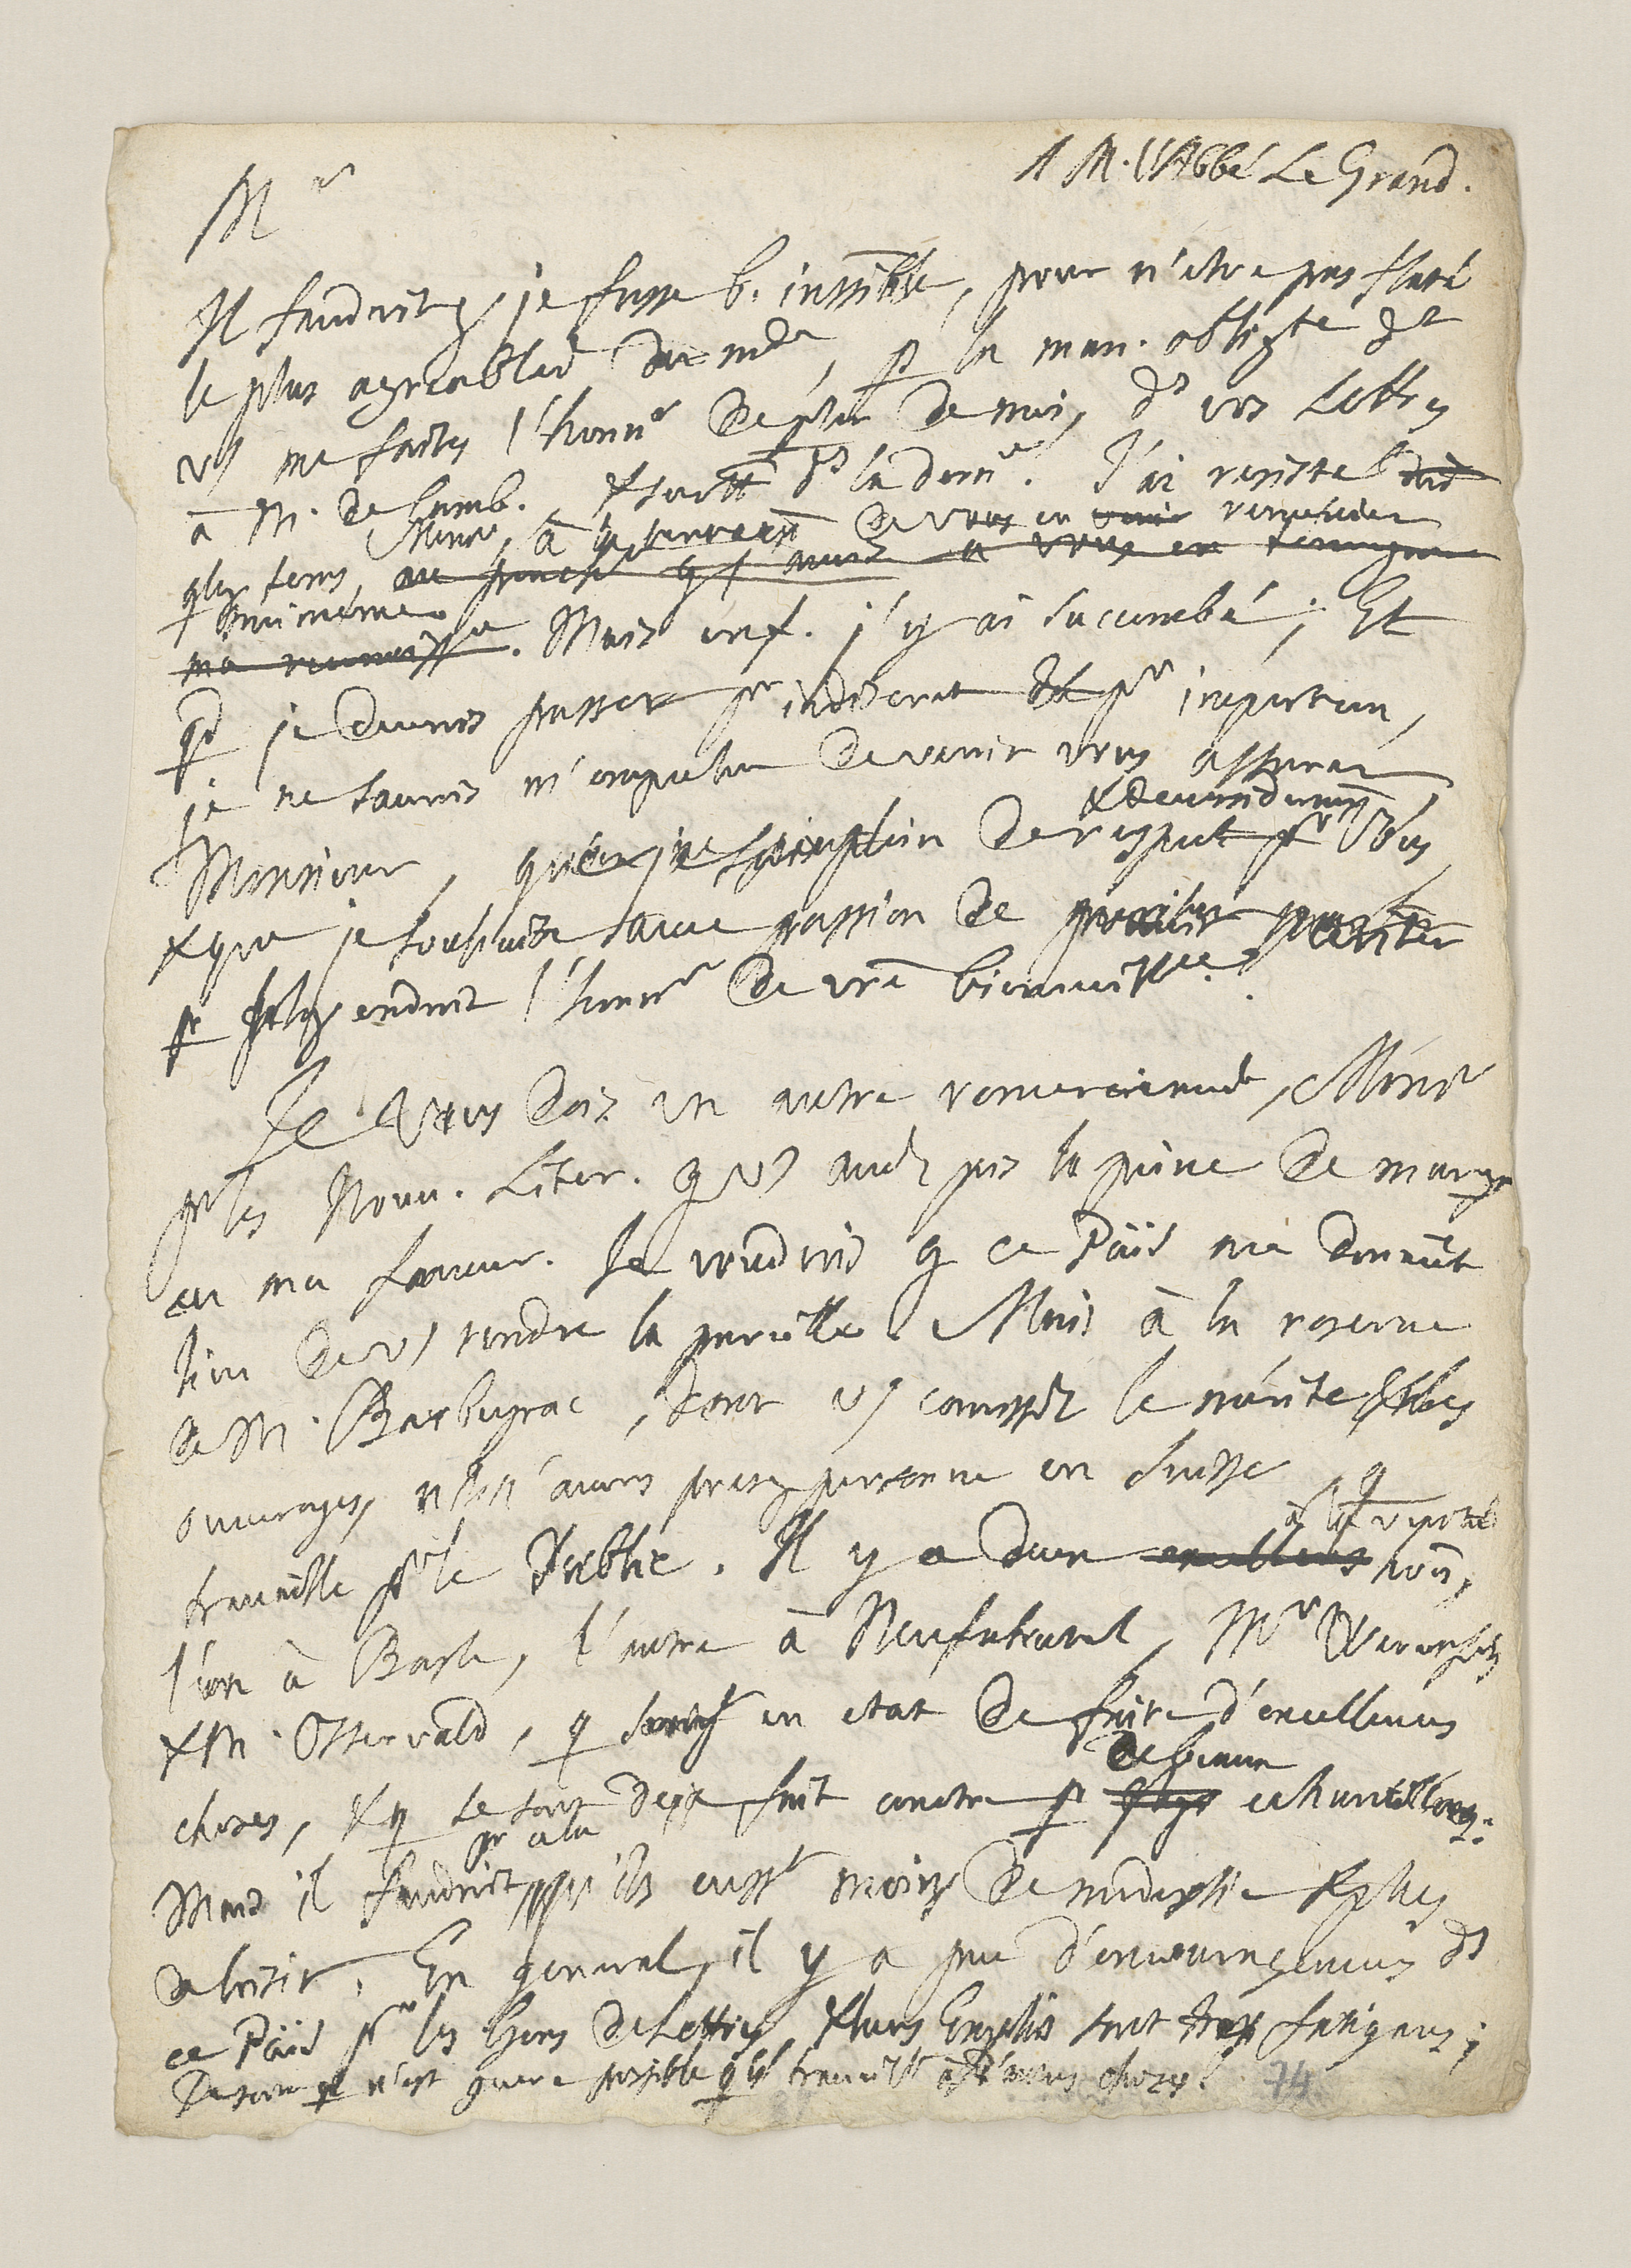 A M. l'Abbé Le Grand.
Mr
Il faudroit q je fusse b. insensible, pour n'etre pas flaté
le plus agreablem̄t du mde, p la man. obligte dt
vs me faites l'honnr de pler de moi, ds vos Lettres
à M. de Lamb. & surtt ds la derne. J'ai resisté
qlq tems, Monsr, à la tentation de vous en remercier
au penchant q j'avois à vous en temoigner
moi même
ma reconnoissce. Mais enf. j'y ai succombé; Et
qd je devrois passer pr indiscret & pr importun,
je ne saurois m'empecher de venir vous assurer,
Monsieur, que je suis plein de respect & de consideration pr Vous,
& que je souhaite avec passion de meriter
p qlq endroit l'honnr de vre bienveillce.
Je vous dois un autre remerciement, Monsr
pr les Nouv. Liter. q vs avez pris la peine de marqr
en ma faveur. Je voudrois q ce Païs me donnât
lieu de vs rendre la pareille. Mais à la reserve
de M. Barbeyrac, dont vs connoissez le mérite & les
ouvrages, ns n'avons presq personne en Suisse q
travaille pr le Public. Il y a deux excellens
l'un à Basle, l'autre à Neufchatel, Mr Werenfels
& M. Ostervald, q seroient en etat de faire d'excellentes
choses, & q se sont deja fait conoitre p de beaux echantillons:
Mais il faudroit pr cela qu'ils eusst moins de modestie & plus
de loisir. En general, il y a peu d'encouragemens ds
ce Païs pr les Gens de Lettres, & leurs Emplois sont trop fatigans;
De sorte q n'est guere possible q ils travaillt à d'autres choses.
74